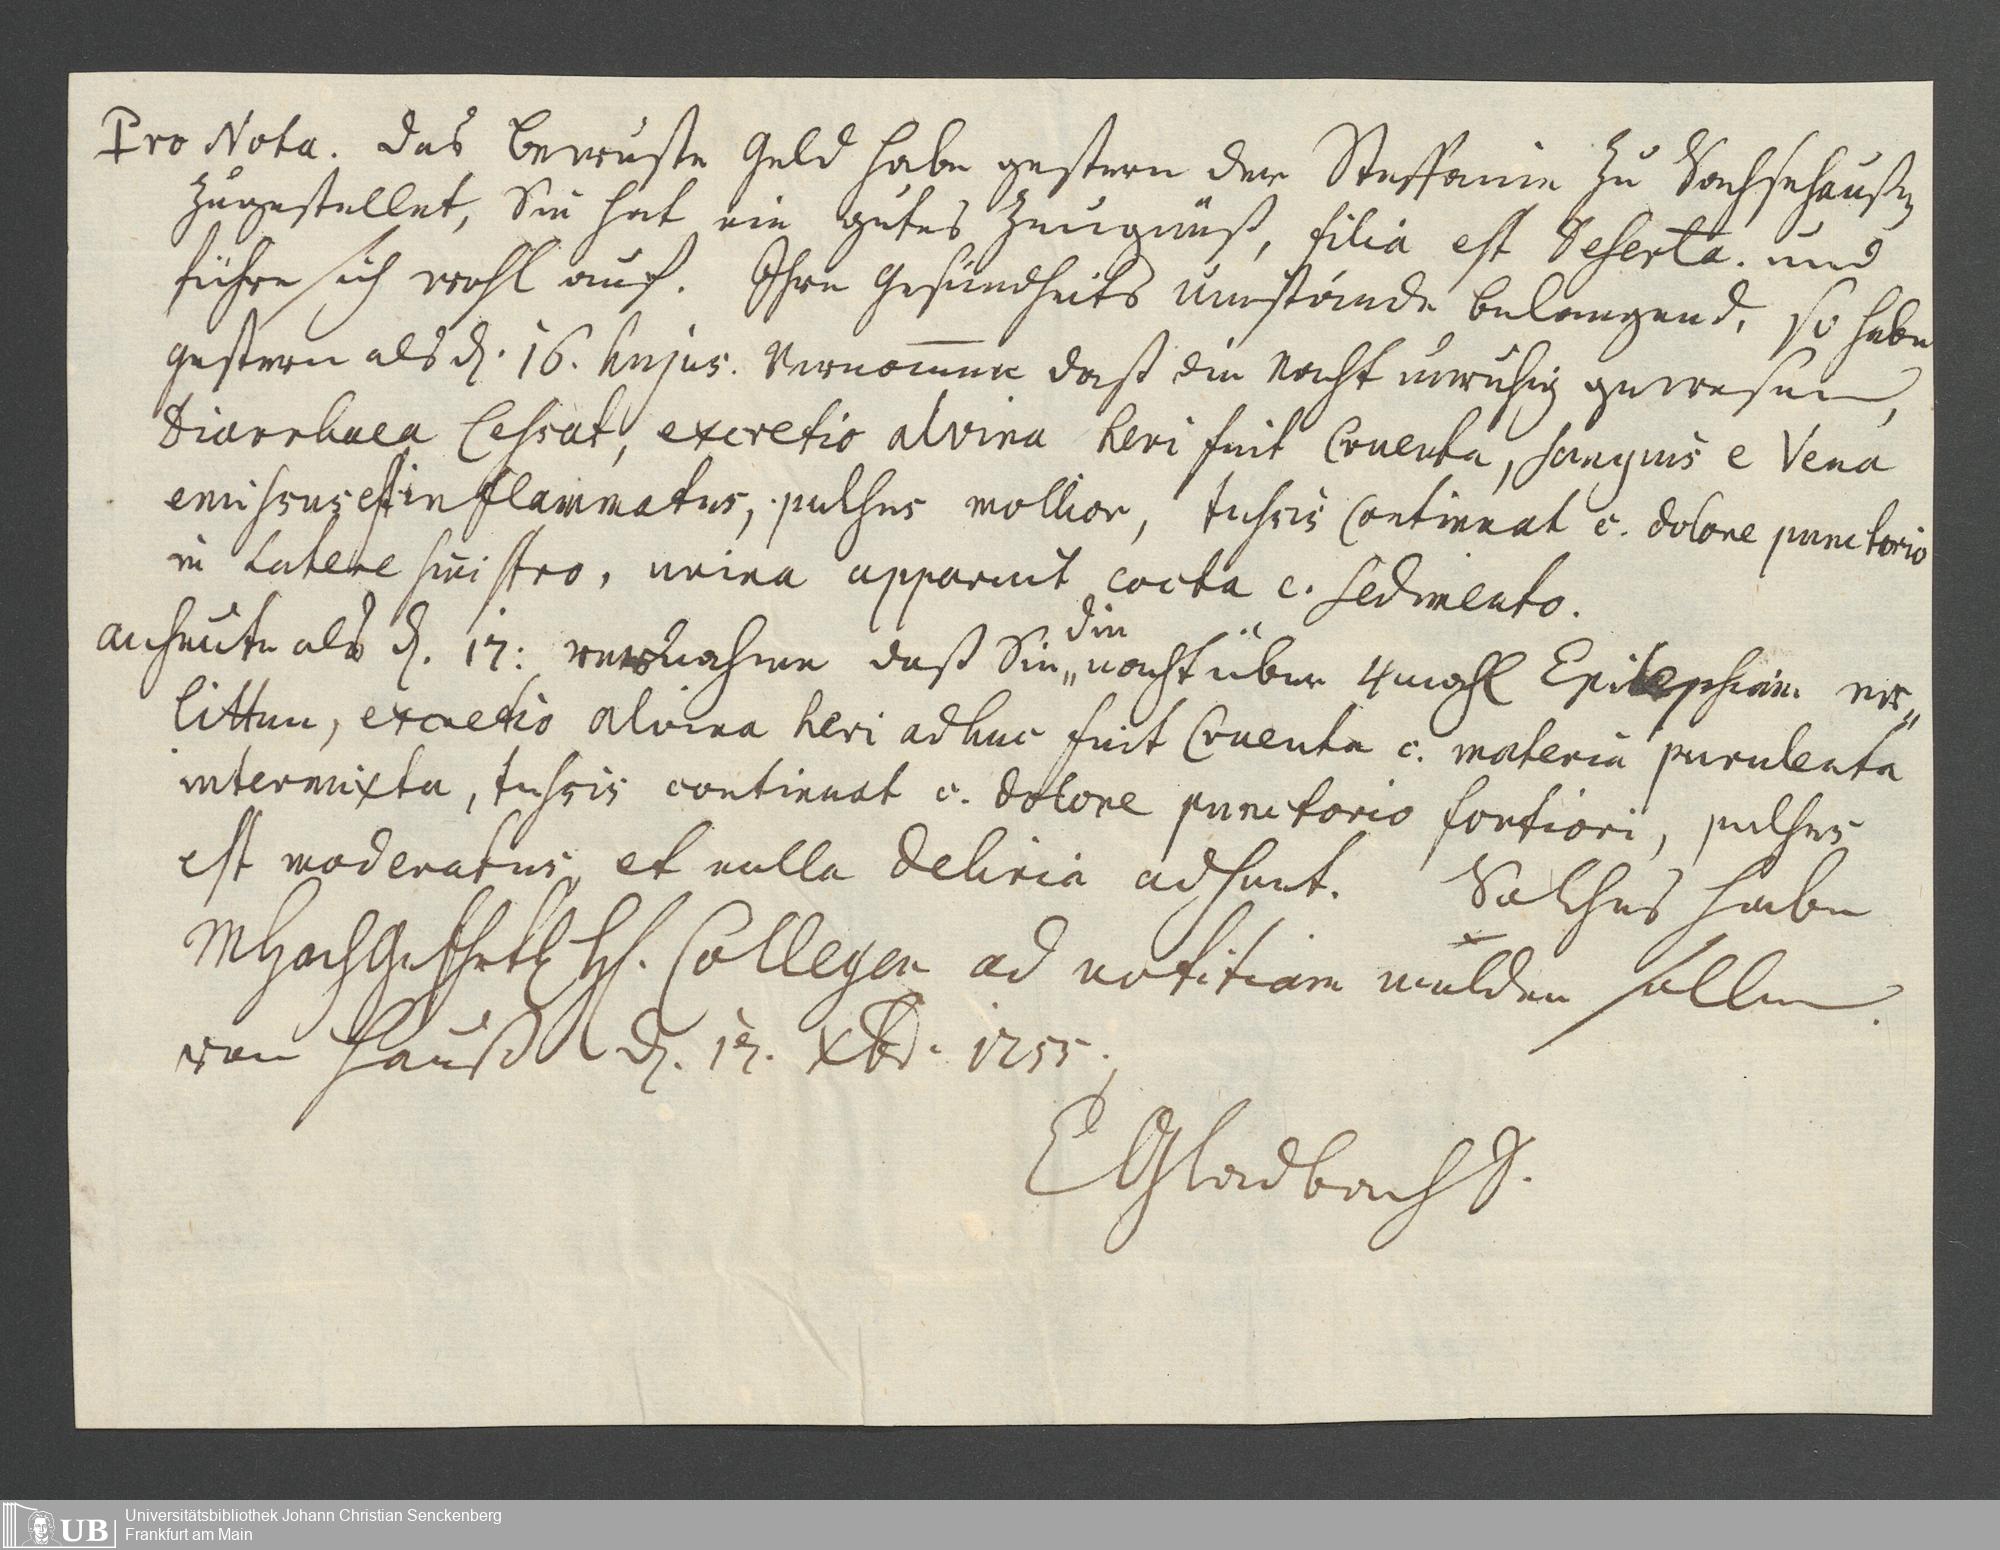 Pro Nota. das bewuste Geld habe gestern der Steffanin zu Sachsehaußen
zugestellet, Sie hat ein gutes Zeugnüß, filia est deserta. und
führe sich wohl auf. Ihre Gesundheits umstände belangend, so habe
gestern als d. 16. hujus. vernom̅en daß die Nacht unruhig gewesen,
Diarrhaea cessat, excretio alvina heri fuit cruenta, sanguis e Vena
emissus est inflammatus, pulsus mollior, tussis continuat c. dolore punctorio
in Latere sinistro, urina apparuit cocta c. sedimento.
anheute als d. 17: vernahme daß Sie die nacht über 4 mahl Epilepsiam er„
litten, excretio alvina heri adhuc fuit cruenta c. materia purulenta
intermixta, tussis continuat c. dolore punctorio fortiori, pulsus
est moderatus, et nulla deliria adsunt. Solches habe
MHochGeEhrth HE. Collegen ad notitiam melden sollen.
von Hauß d. 17. Xbr. 1755.
E Gladbach D.
UB
Universitätsbibliothek Johann Christian Senckenberg
Frankfurt am Main